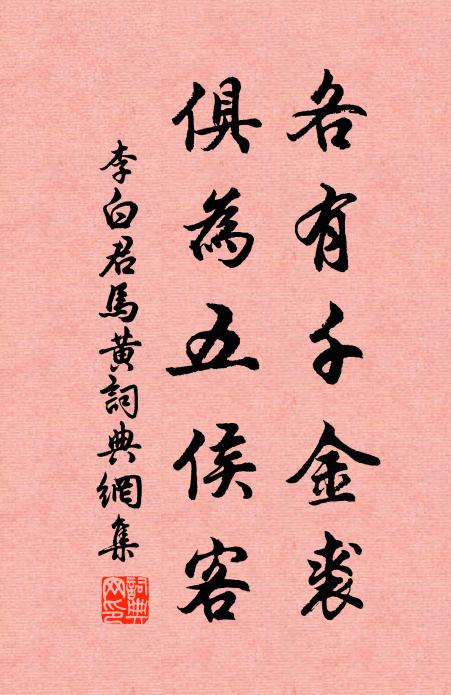 各有千金裘
俱為五侯客
李白君馬黃詞典網集
詞典網印